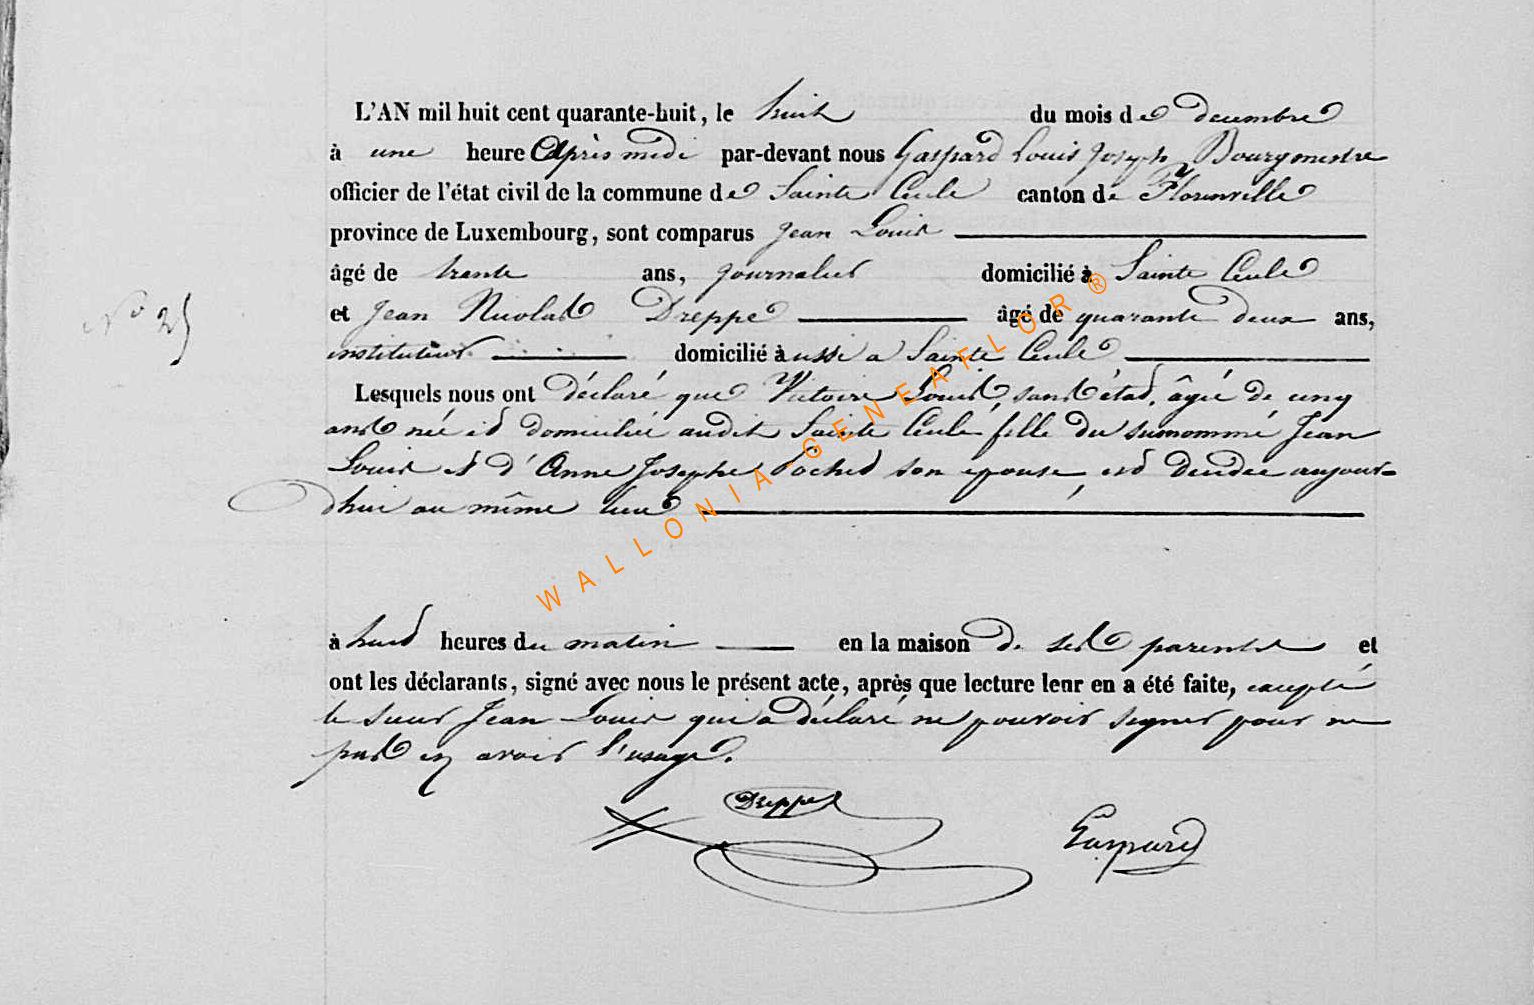 L'AN mil huit cent quarante-huit, le huit du mois de decembre
à une heure Après midi par-devant nous Gaspard Louis Joseph Bourgmestre
officier de l'état civil de la commune de Sainte Cecile canton de Florenville
province de Luxembourg, sont comparus Jean Louis
âgé de trente ans, journalier domicilié à Sainte Cecile
et Jean Nicolas Dreppe âgé de quarante deux ans,
N° 25
instituteur domicilié aussi a Sainte Cecile
Lesquels nous ont déclaré que Victoire Louis, sans état, âgée de cinq
ans née et domiciliée audit Sainte Cecile fille du surnommé Jean
Louis et d'Anne Josephe son epouse, est décédée aujour=
dhui au même lieu
à huit heures du matin en la maison de ses parents et
ont les déclarants, signé avec nous le présent acte, après que lecture leur en a été faite, excepté
le sieur Jean Louis qui a déclaré ne pouvoir signer pour ne
pas en avoir l'usage.
Dreppe
Gaspard
WALLONIA-GENEAFLOR®